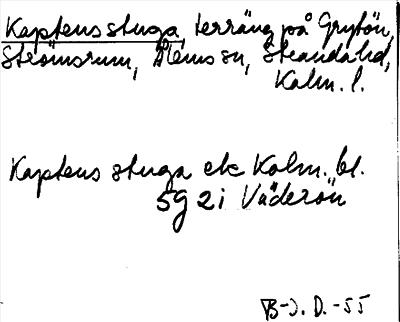 Kaptens stuga, terräng på Grytön,
Strömsrum, Ålems sn, Strandahd,
Kalm. l.
Kaptens stuga ek Kalm. bl.
5g 2i Väderön
B-J. D. -55